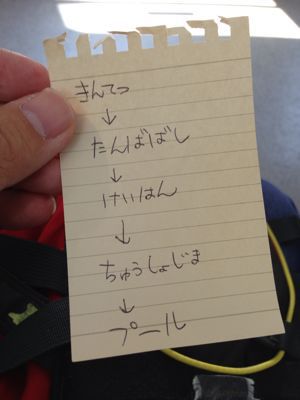 きんてつ
↓
たんばばし
↓
けいはん
↓
ちゅうしょじま
↓
プール